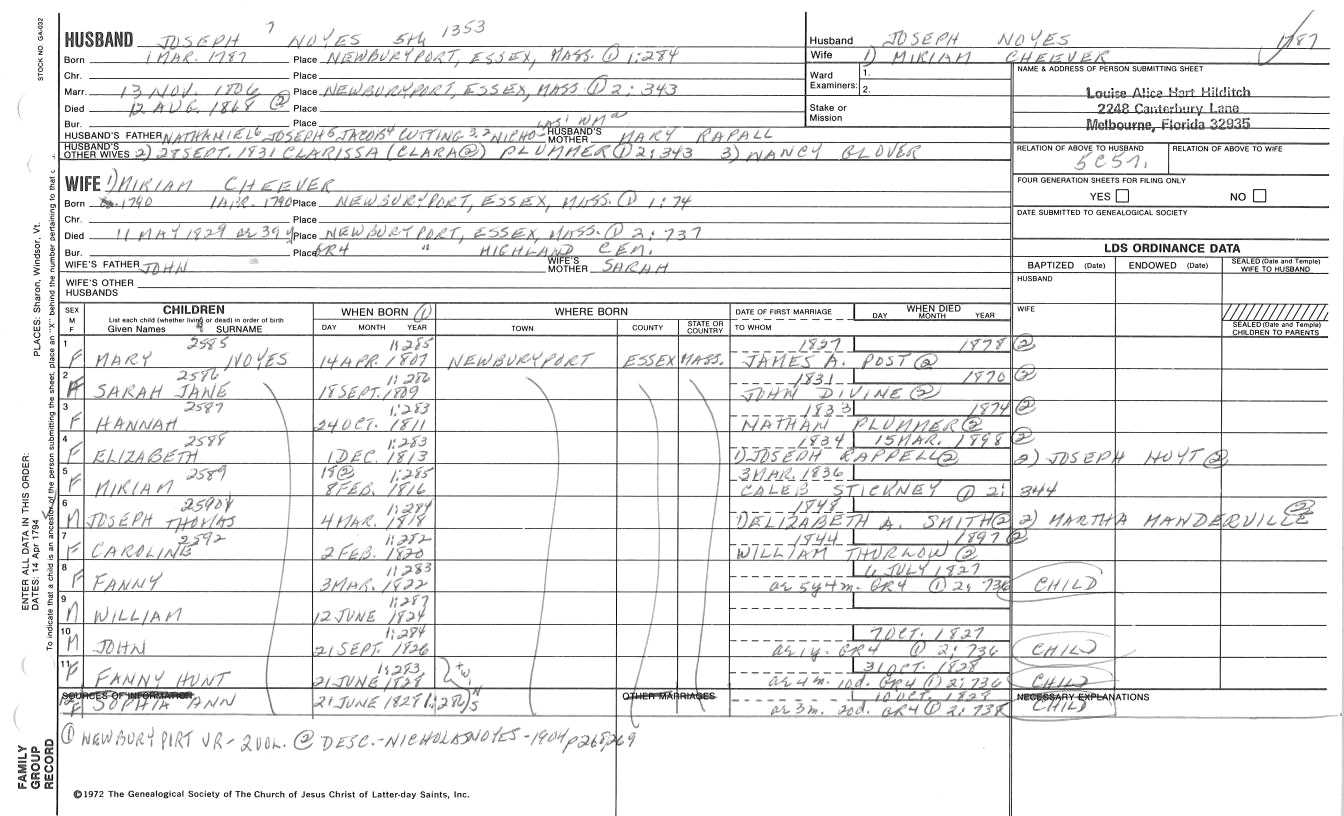 STOCK NO GA-032
HUSBAND JOSEPH 7 NOYES 5th 1353
Born 1 MAR. 1787 Place NEWBURYPORT, ESSEX, MASS. ① 1:284
Chr. Place
Marr. 13 NOV. 1806 Place NEWBURYPORT, ESSEX, MASS ① 2:343
Died 12 AUG. 1868 ② Place
Bur. Place
HUSBAND'S FATHER NATHANIEL6 JOSEPH5 JACOB4 CUTTING 3,2 NICHO- LAS1 WMA HUSBAND'S MOTHER MARY RAPALL
HUSBAND'S OTHER WIVES 2) 27 SEPT. 1831 CLARISSA (CLARA②) PLUMMER ① 2:343 3) NANCY GLOVER
Husband JOSEPH NOYES 1787
Wife 1) MIRIAM CHEEVER
Ward Examiners: 1. 2.
Stake or Mission
NAME & ADDRESS OF PERSON SUBMITTING SHEET
Louise Alice Hart Hilditch
2248 Canterbury Lane
Melbourne, Florida 32935
RELATION OF ABOVE TO HUSBAND RELATION OF ABOVE TO WIFE
FOUR GENERATION SHEETS FOR FILING ONLY
YES NO
DATE SUBMITTED TO GENEALOGICAL SOCIETY
WIFE 1) MIRIAM CHEEVER
Born 1790 1 APR. 1790 Place NEWBURYPORT, ESSEX, MASS. ① 1:74
Chr. Place
Died 11 MAY 1829 ae 39 y Place NEWBURYPORT, ESSEX, MASS. ① 2:737
Bur. Place GR4 " HIGHLAND CEM.
WIFE'S FATHER JOHN WIFE'S MOTHER SARAH
WIFE'S OTHER HUSBANDS
LDS ORDINANCE DATA
BAPTIZED (Date) ENDOWED (Date) SEALED (Date and Temple) WIFE TO HUSBAND
HUSBAND
WIFE
SEALED (Date and Temple) CHILDREN TO PARENTS
SEX M F CHILDREN List each child (whether living or dead) in order of birth Given Names SURNAME
WHEN BORN ① DAY MONTH YEAR
WHERE BORN TOWN COUNTY STATE OR COUNTRY
DATE OF FIRST MARRIAGE TO WHOM
WHEN DIED DAY MONTH YEAR
1 2585 1:285 1827 1878 ②
F MARY NOYES 14 APR. 1807 NEWBURYPORT ESSEX MASS. JAMES A. POST ②
2 2586 1:286 1831 1870 ②
F SARAH JANE 18 SEPT. 1809 JOHN DIVINE ②
3 2587 1:283 1833 1874 ②
F HANNAH 24 OCT. 1811 NATHAN PLUMMER ②
4 2588 1:283 1834 15 MAR. 1898 ②
F ELIZABETH 1 DEC. 1813 1) JOSEPH RAPPELL ② 2) JOSEPH HOYT ②
5 2589 18 ② 1:285 3 MAR. 1836
F MIRIAM 8 FEB. 1816 CALEB STICKNEY ① 2: 344
6 2590 1:284 1848
M JOSEPH THOMAS 4 MAR. 1818 1) ELIZABETH A. SMITH ② 2) MARTHA MANDERVILLE ②
7 2592 1:282 1844 1897 ②
F CAROLINE 2 FEB. 1820 WILLIAM THURLOW ②
8 1:283 6 JULY 1827
F FANNY 3 MAR. 1822 ae 5y 4m. GR4 ① 2:736 CHILD
9 1:287
M WILLIAM 12 JUNE 1824
10 1:284 7 OCT. 1827
M JOHN 21 SEPT. 1826 ae 1y. GR4 ① 2:736 CHILD
11 1:283 31 OCT. 1828
F FANNY HUNT 21 JUNE 1828 TWINS ae 4m. 10d. GR4 ① 2:736 CHILD
SOURCES OF INFORMATION OTHER MARRIAGES NECESSARY EXPLANATIONS
12 10 OCT. 1828
F SOPHIA ANN 21 JUNE 1828 1:286 ae 3m. 20d. GR4 ① 2:738 CHILD
① NEWBURYPORT VR - 2 VOL. ② DESC. - NICHOLAS NOYES - 1904 p268,269
©1972 The Genealogical Society of The Church of Jesus Christ of Latter-day Saints, Inc.
PLACES: Sharon, Windsor, Vt.
ENTER ALL DATA IN THIS ORDER:
DATES: 14 Apr 1794
To indicate that a child is an ancestor of the person submitting the sheet, place an "X" behind the number pertaining to that c
FAMILY
GROUP
RECORD